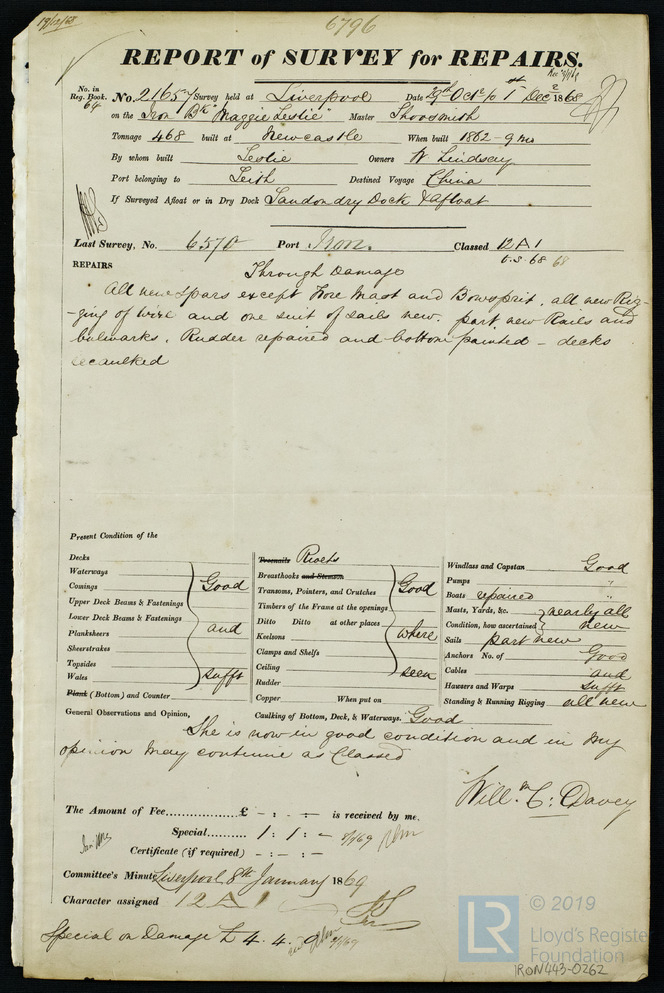 19/12/68
6796
REPORT of SURVEY for REPAIRS.
No. in Reg. Book. 64 No. 21657 Survey held at Liverpool Date 29th Octr to 1st Decr 1868
on the Iron Bk "Maggie Leslie" Master Shoosmith
Tonnage 468 built at Newcastle When built 1862-9mo
By whom built Leslie Owners W Lindsey
Port belonging to Leith Destined Voyage China
If Surveyed Afloat or in Dry Dock Sandon dry Dock & afloat
Last Survey, No. 6570 Port Iron. Classed 12A1
68 68
REPAIRS Through Damage
All new Spars except Fore Mast and Bowsprit, all new Rig-
-ging of wire and one suit of sails new. part new Rails and
bulwarks. Rudder repaired and bottom painted - decks
recaulked
Present Condition of the
Decks
Waterways
Comings Good
Upper Deck Beams & Fastenings
Lower Deck Beams & Fastenings and
Planksheers
Sheerstrakes
Topsides
Wales sufft
Plank (Bottom) and Counter
Treenails Rivets
Breasthooks and Stemson
Transoms, Pointers, and Crutches Good
Timbers of the Frame at the openings
Ditto Ditto at other places where
Keelsons
Clamps and Shelfs
Ceiling seen
Rudder
Copper When put on
Windlass and Capstan Good
Pumps "
Boats repaired "
Masts, Yards, &c. nearly all
Condition, how ascertained new
Sails part new
Anchors No. of Good
Cables and
Hawsers and Warps sufft
Standing & Running Rigging all new
General Observations and Opinion, Caulking of Bottom, Deck, & Waterways. Good
She is now in good condition and in my
opinion may continue as Classed
Willm C: Davey
The Amount of Fee £ - : - : - is received by me,
Special 1 : 1 : -
Certificate (if required) - : - : -
Committee's Minute Liverpool 8th January 1869
Character assigned 12 A 1
Special on Damage £ 4. 4.
© 2019
LR
Lloyd's Register
Foundation
IRON443-0262